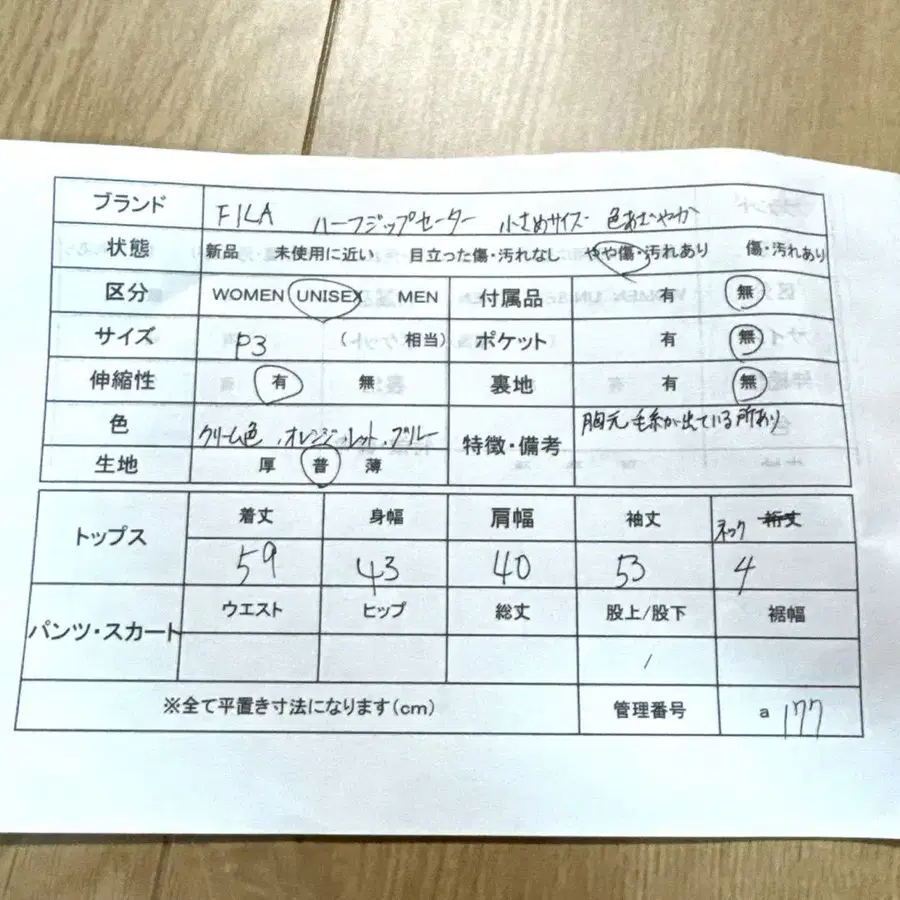 ブランド FILA ハーフジップセーター 小さめサイズ 色あざやか
状態 新品 未使用に近い 目立った傷・汚れなし やや傷・汚れあり 傷・汚れあり
区分 WOMEN UNISEX MEN 付属品 有 無
サイズ P3 ( 相当) ポケット 有 無
伸縮性 有 無 裏地 有 無
色 クリーム色、オレンジ、レット、ブルー 特徴・備考 胸元毛糸が出ている所あり
生地 厚 普 薄
トップス 着丈 身幅 肩幅 袖丈 ネック 裄丈
59 43 40 53 4
パンツ・スカート ウエスト ヒップ 総丈 股上/股下 裾幅
/
※全て平置き寸法になります(cm) 管理番号 a 177